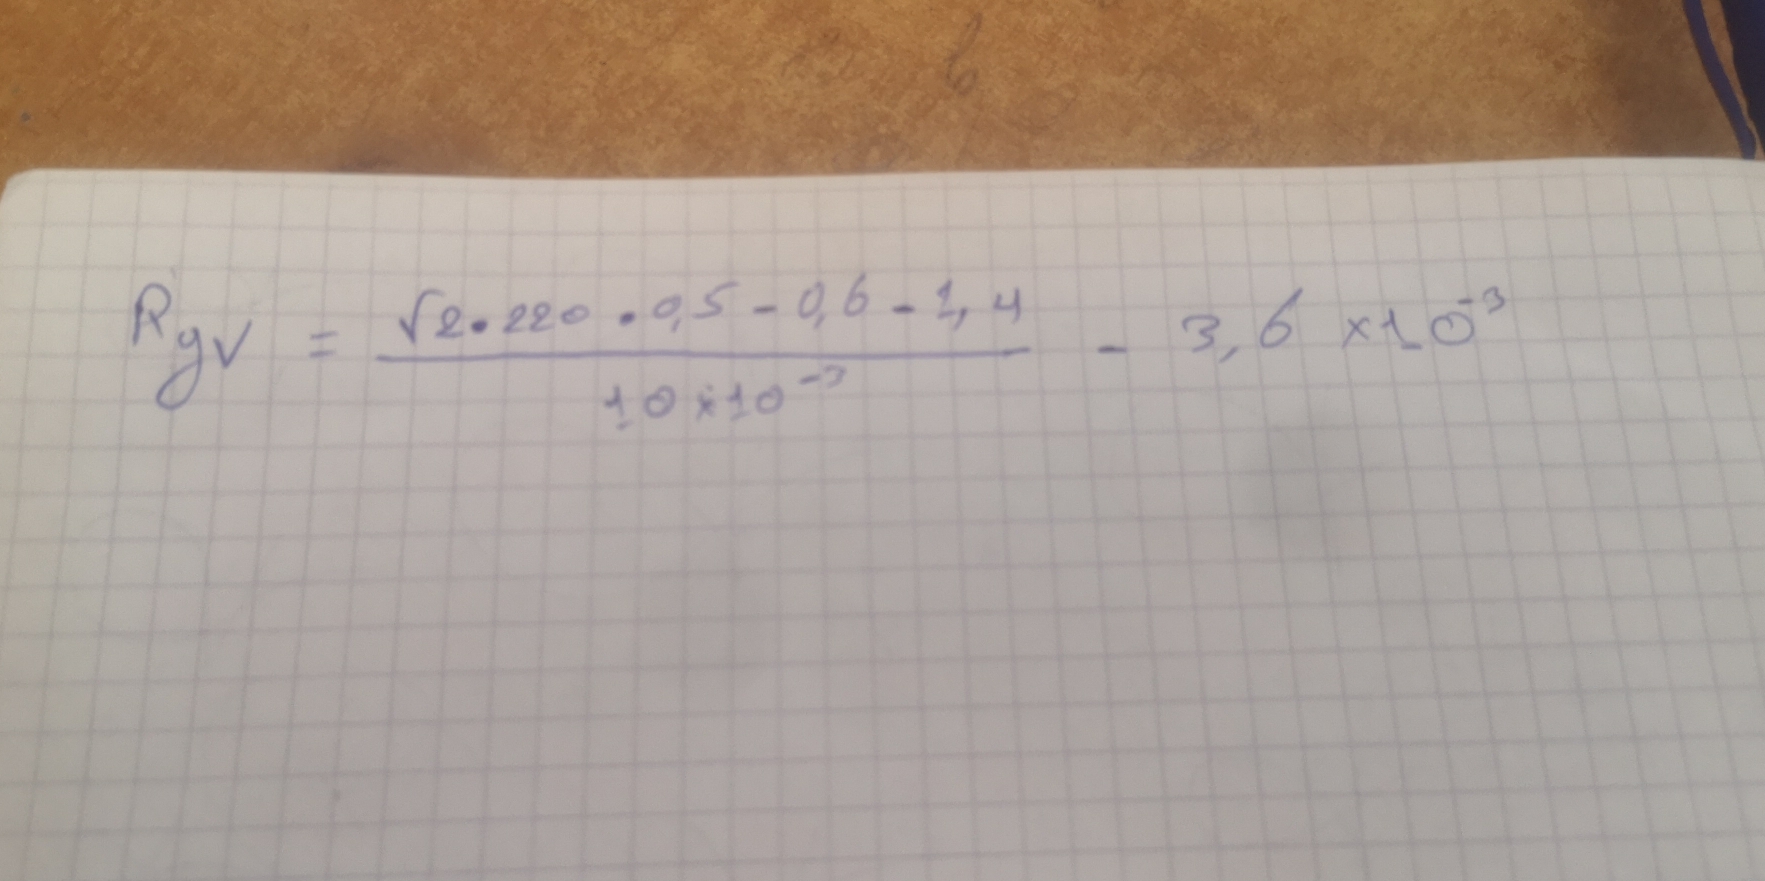 Rgv = (√2 • 220 • 0,5 - 0,6 - 1,4) / (10 × 10⁻³) - 3,6 × 10⁻³